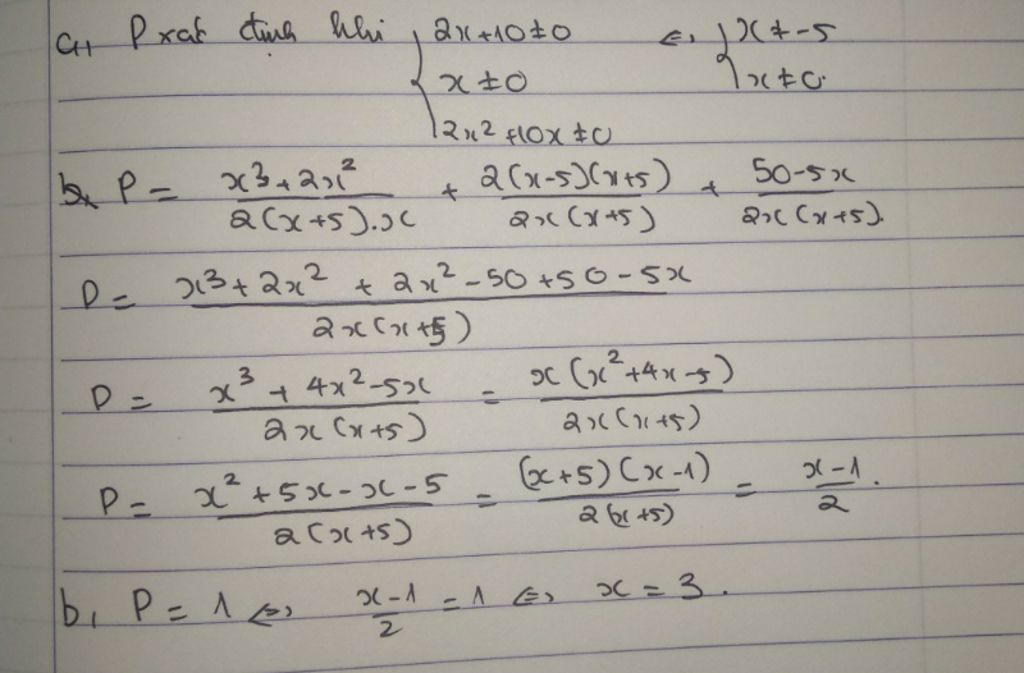 a, P xác định khi { 2x+10≠0 ⇔ { x≠-5
x≠0 x≠0.
2x²+10x≠0
P = (x³+2x²)/(2(x+5).x) + (2(x-5)(x+5))/(2x(x+5)) + (50-5x)/(2x(x+5)).
P = (x³+2x²+2x²-50+50-5x)/(2x(x+5))
P = (x³+4x²-5x)/(2x(x+5)) = (x(x²+4x-5))/(2x(x+5))
P = (x²+5x-x-5)/(2(x+5)) = ((x+5)(x-1))/(2(x+5)) = (x-1)/2.
b, P = 1 ⇔ (x-1)/2 = 1 ⇔ x = 3.